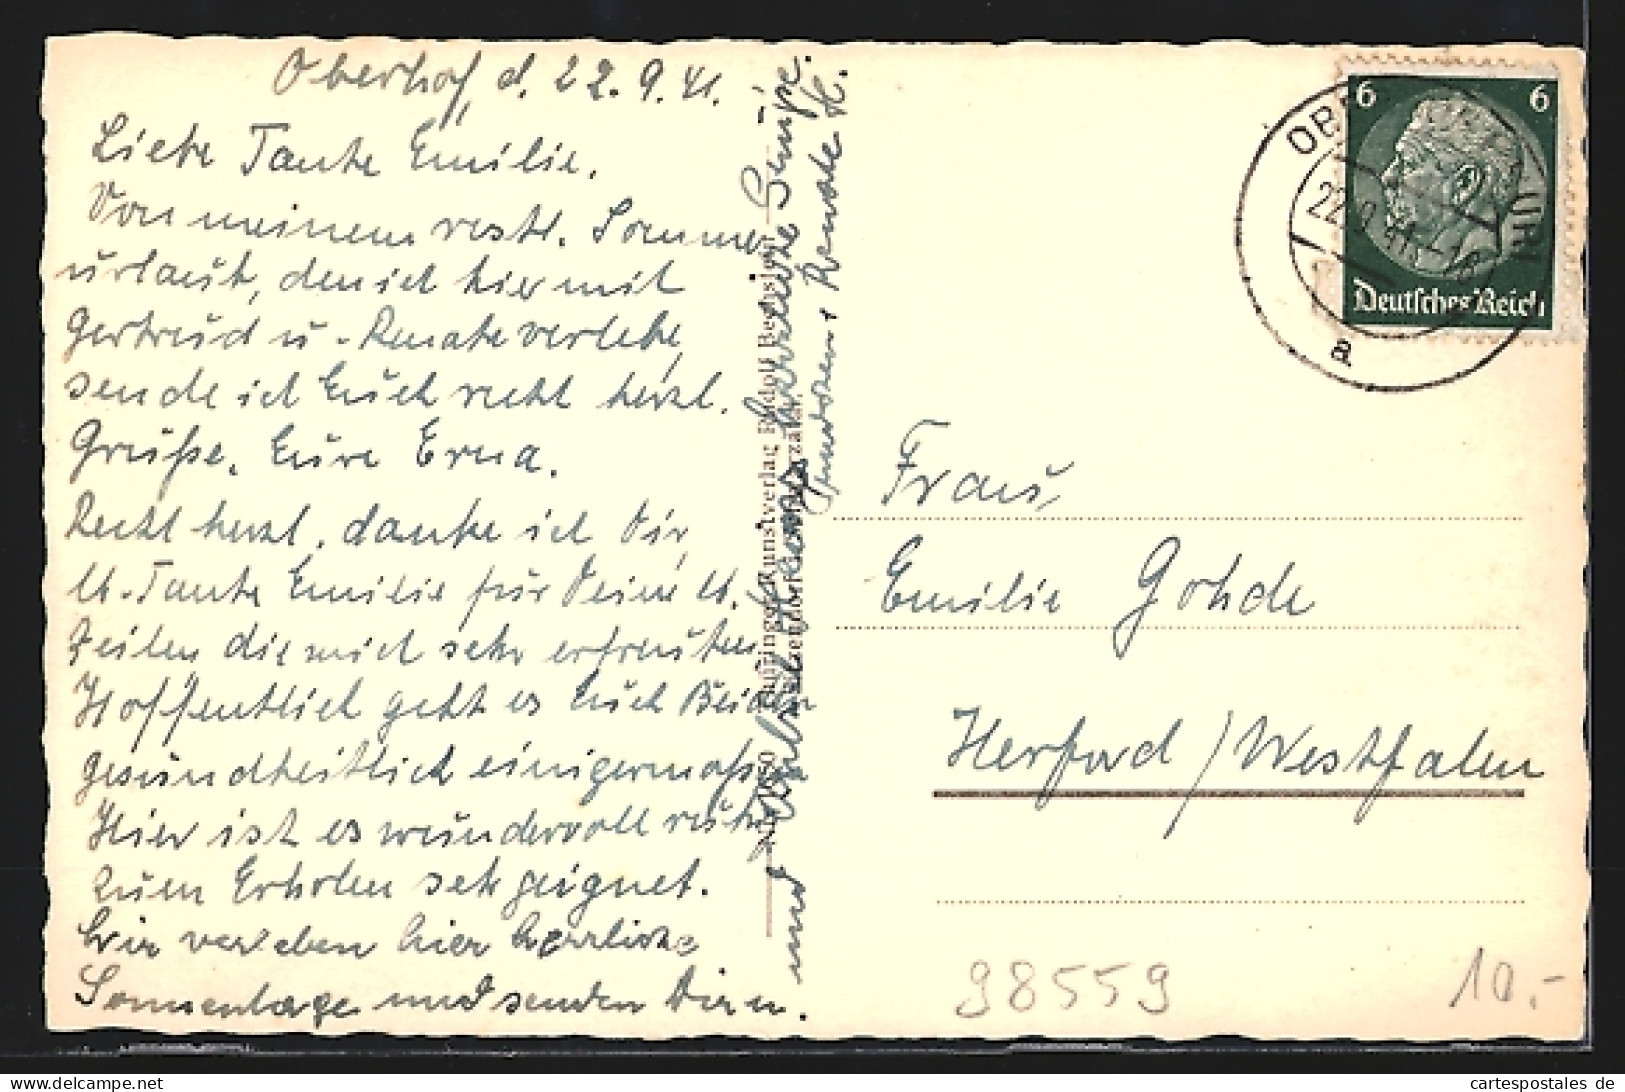 Oberhof, d. 22. 9. 41.
Liebe Tante Emilie.
Von meinem restl. Sommer
urlaub, den ich hier mit
Gertrud u. Renate verlebe,
sende ich Euch recht herzl.
Grüße. Eure Erna.
Recht herzl. danke ich Dir,
lb. Tante Emilie für Deine lb.
Zeilen, die mich sehr erfreuten
Hoffentlich geht es Euch Beiden
gesundheitlich einigermaßen
Hier ist es wundervoll ruhig
zum Erholen sehr geeignet.
Wir verleben hier herrliche
Sonnentage und senden Dir u.
und herzliche Grüße.
u. Renate H.
Thüringer Kunstverlag Rudolf
6 6
Deutsches Reich
22.9.41.-18
a
Frau
Emilie Gohde
Herford / Westfalen
98559
10.-
cartespostales de
www.cartespostales.de